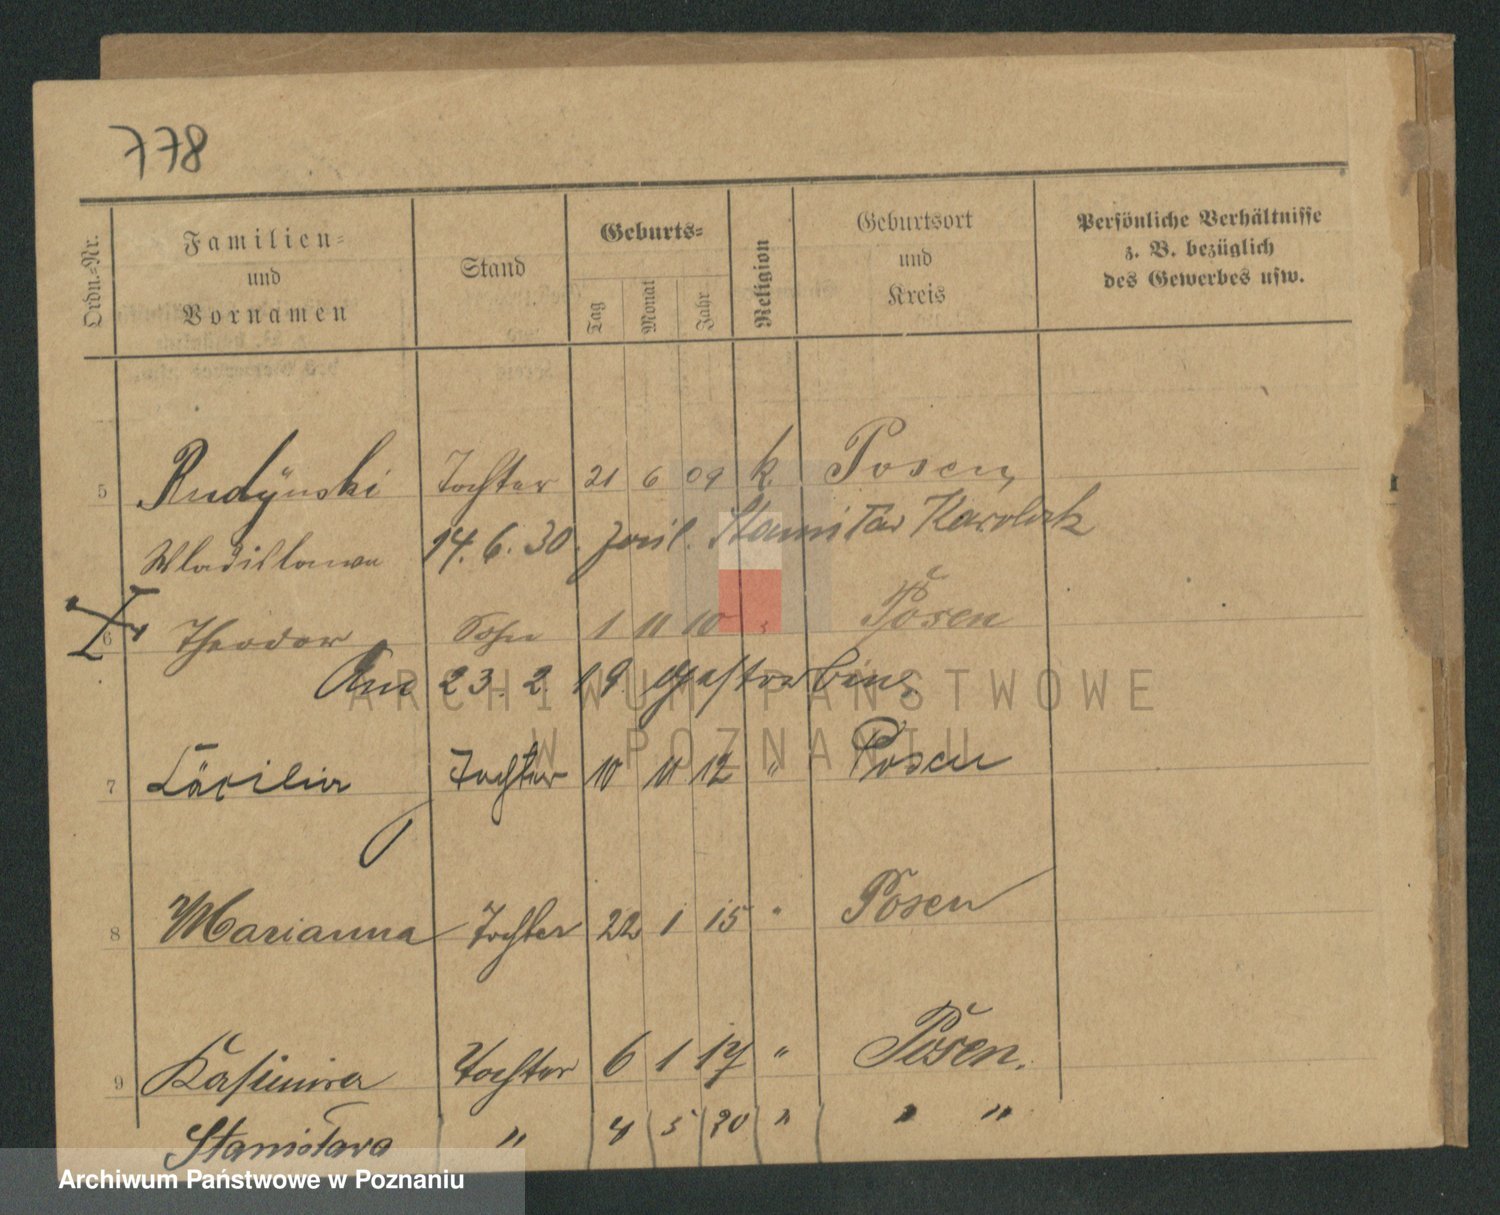 778
Ordn.-Nr.
Familien-
und
Vornamen
Stand
Geburts-
Tag
Monat
Jahr
Religion
Geburtsort
und
Kreis
Persönliche Verhältnisse
z. B. bezüglich
des Gewerbes usw.
5 Rudÿnski Tochter 21 6 09 k. Posen,
Wladislawa 14. 6. 30. Stanislav
6 Theodor Sohn 1 11 10 " Posen
Am 23. 2. 19. gestorben,
7 Cäcilia Tochter 10 11 12 " Posen
8 Marianna Tochter 22 1 15 " Posen
9 Kasimira Tochter 6 1 17 " Posen.
Stanislava " 4 5 20 " " "
ARCHIWUM PAŃSTWOWE
W POZNANIU
Archiwum Państwowe w Poznaniu